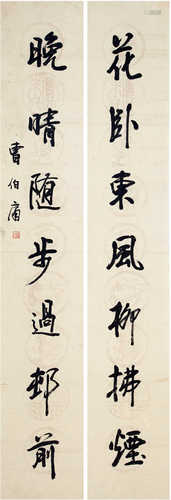 花卧東風柳拂煙
晚晴随步過邨前
曹伯庸